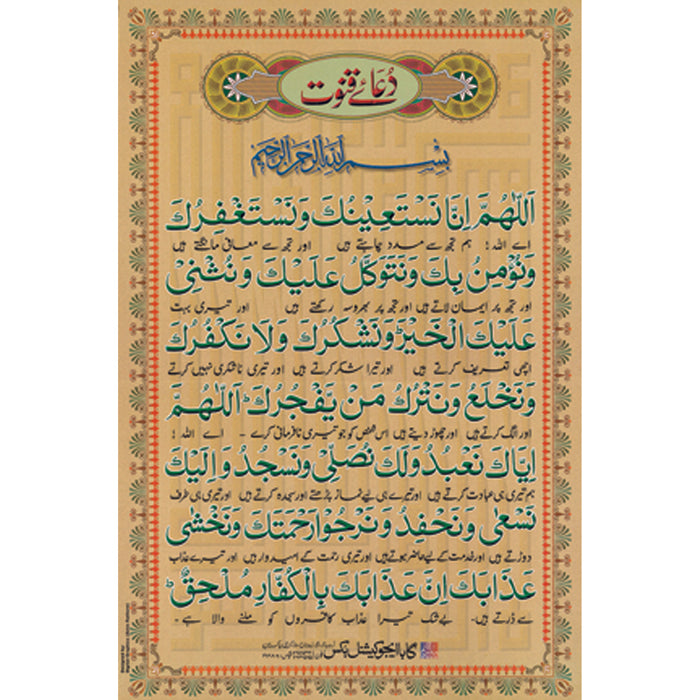 دُعَائے قنوت
بِسْمِ اللهِ الرَّحْمٰنِ الرَّحِيْمِ
اَللّٰهُمَّ اِنَّا نَسْتَعِيْنُكَ وَنَسْتَغْفِرُكَ
اے اللہ! ہم تجھ سے مدد چاہتے ہیں اور تجھ سے معافی مانگتے ہیں
وَنُؤْمِنُ بِكَ وَنَتَوَكَّلُ عَلَيْكَ وَنُثْنِيْ
اور تجھ پر ایمان لاتے ہیں اور تجھ پر بھروسہ رکھتے ہیں اور تیری بہت
عَلَيْكَ الْخَيْرَ وَنَشْكُرُكَ وَلَا نَكْفُرُكَ
اچھی تعریف کرتے ہیں اور تیرا شکر کرتے ہیں اور تیری ناشکری نہیں کرتے
وَنَخْلَعُ وَنَتْرُكُ مَنْ يَّفْجُرُكَ ؕ اَللّٰهُمَّ
اور الگ کرتے ہیں اور چھوڑ دیتے ہیں اس شخص کو جو تیری نافرمانی کرے ۔ اے اللہ!
اِيَّاكَ نَعْبُدُ وَلَكَ نُصَلِّيْ وَنَسْجُدُ وَاِلَيْكَ
ہم تیری ہی عبادت کرتے ہیں اور تیرے ہی لیے نماز پڑھتے اور سجدہ کرتے ہیں اور تیری ہی طرف
نَسْعٰى وَنَحْفِدُ وَنَرْجُوْا رَحْمَتَكَ وَنَخْشٰى
دوڑتے ہیں اور خدمت کے لیے حاضر ہوتے ہیں اور تیری رحمت کے امیدوار ہیں اور تیرے عذاب
عَذَابَكَ اِنَّ عَذَابَكَ بِالْكُفَّارِ مُلْحِقٌ ؕ
سے ڈرتے ہیں۔ بے شک تیرا عذاب کافروں کو ملنے والا ہے ۔
گابا ایجوکیشنل بکس